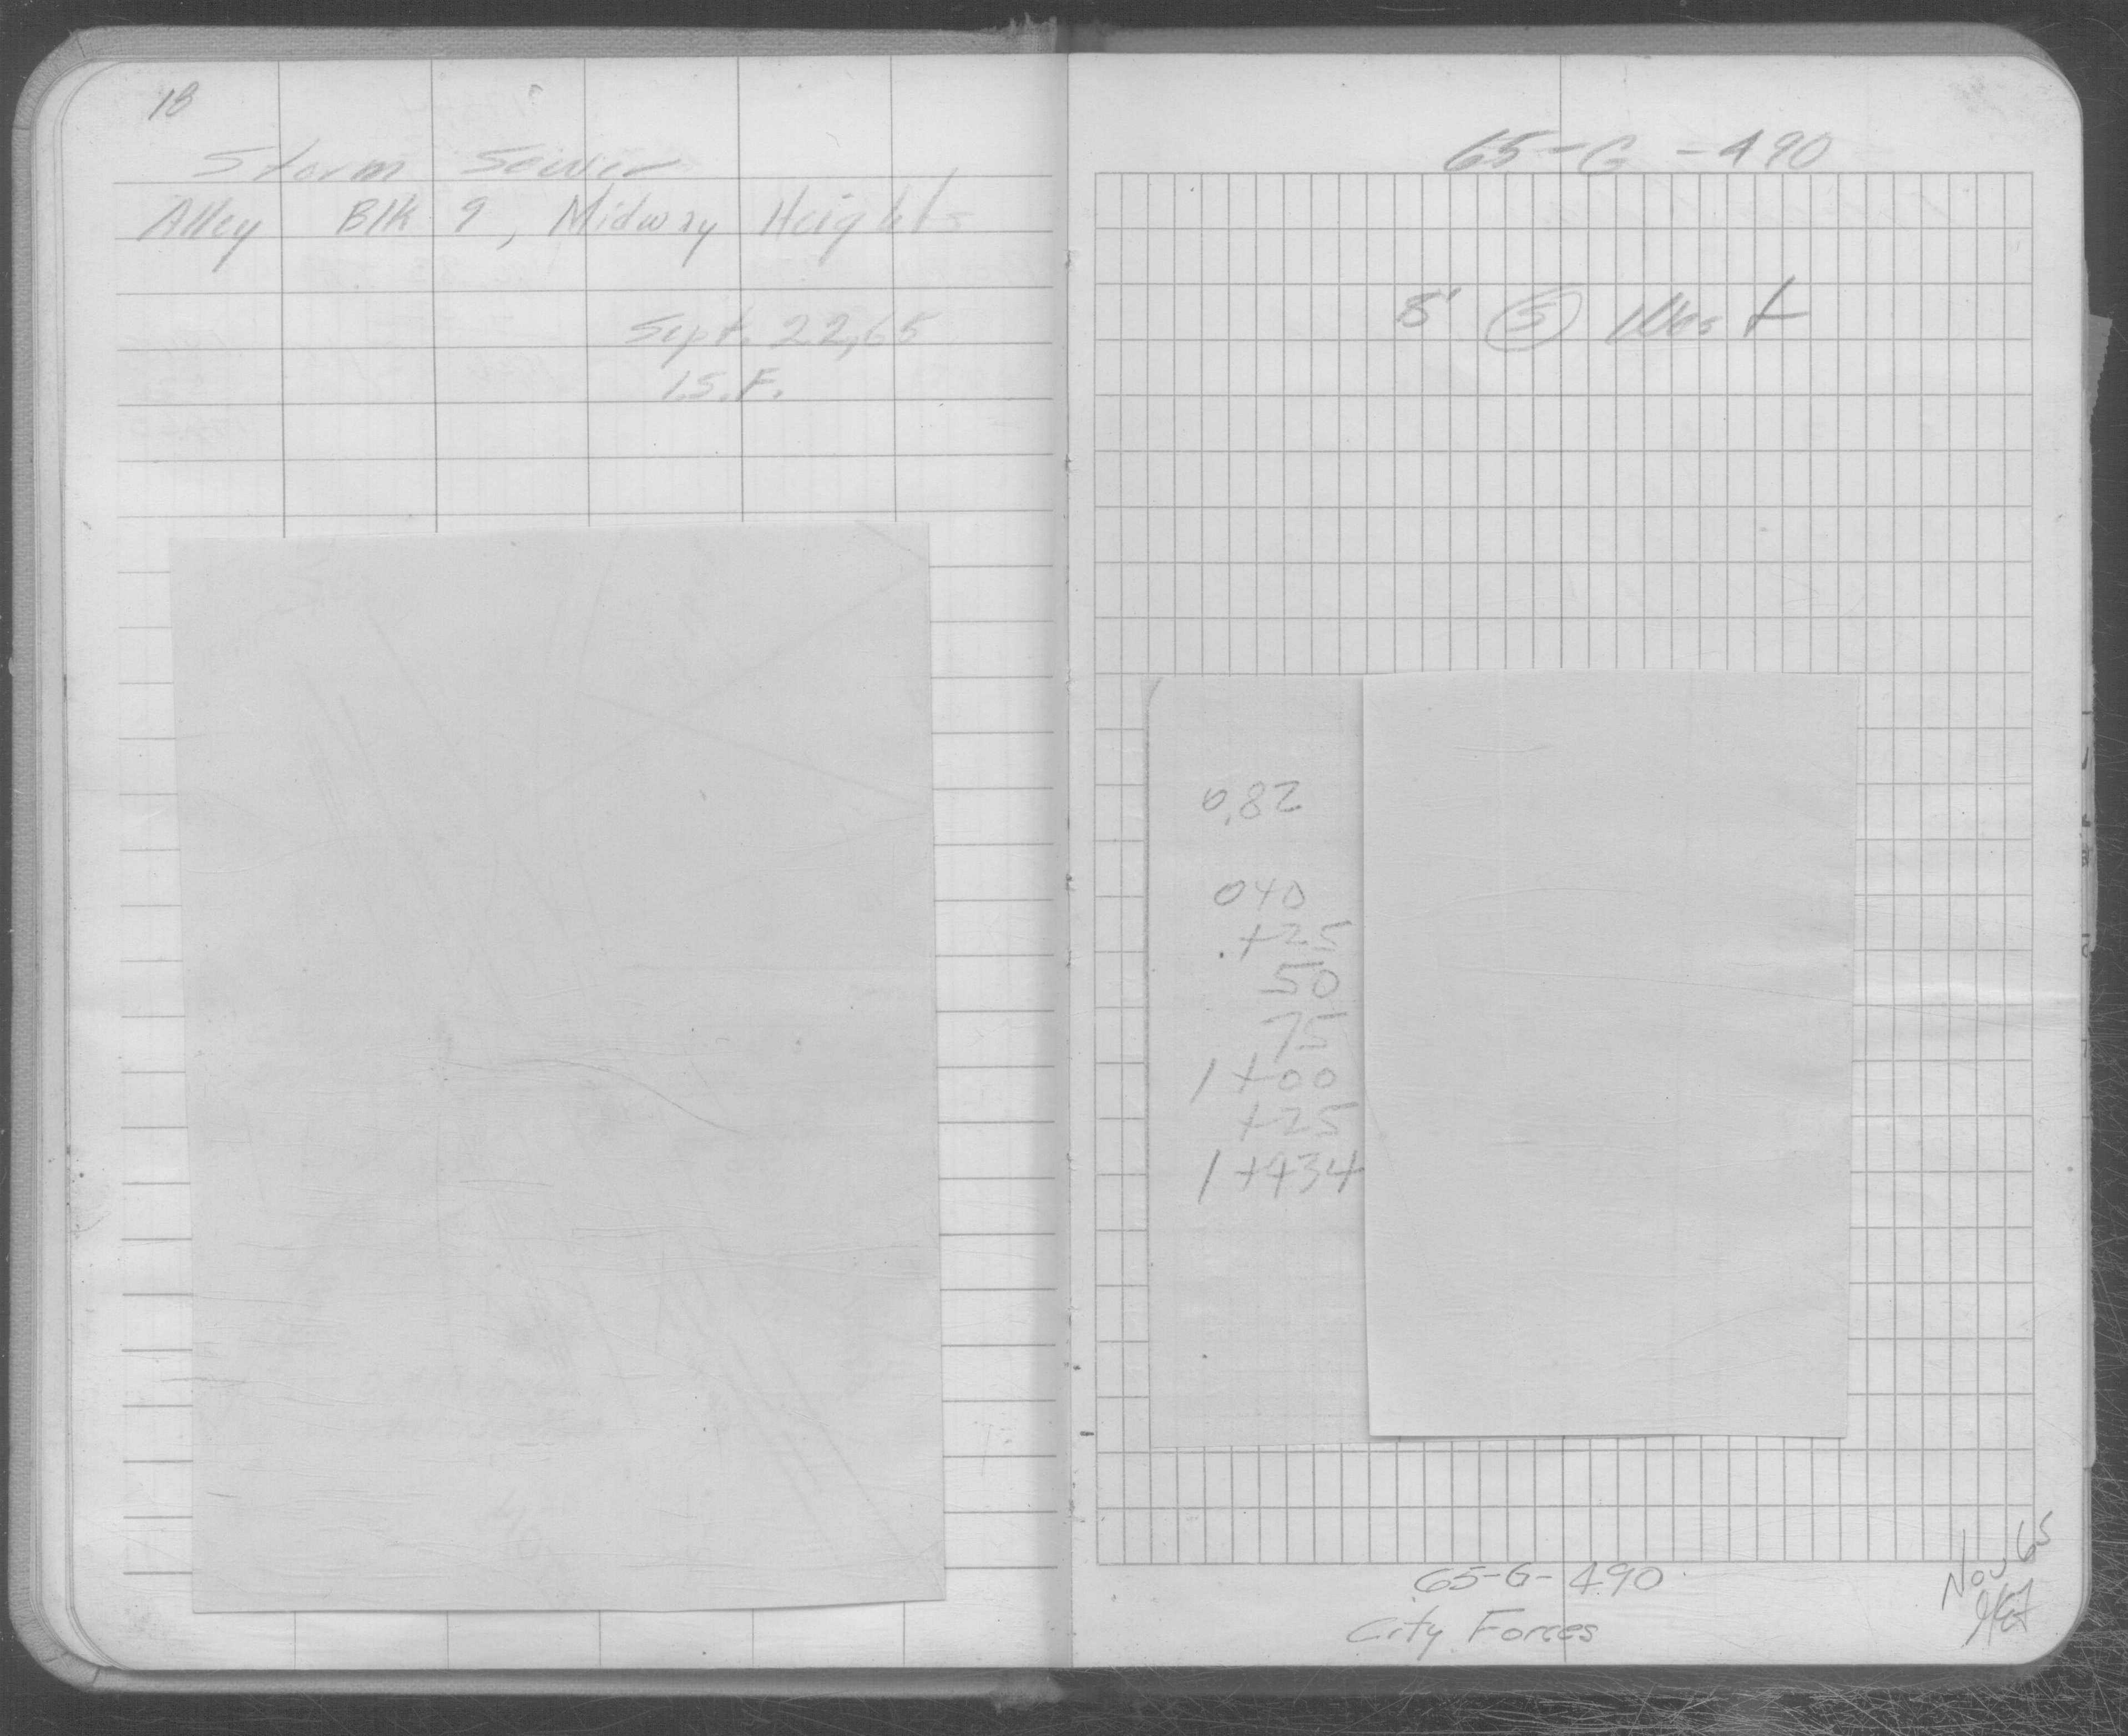 18
Storm Sewer
Alley Blk 9, Midway Heights
Sept. 22, 65
I.S.F.
65-G-490
8' (S) West
0.82
0+0
+25
50
75
1+00
+25
1+434
65-G-490
City Forces
Nov 65